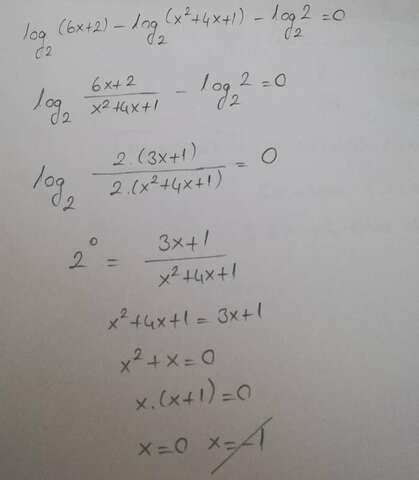 log₂(6x+2) - log₂(x²+4x+1) - log₂2 = 0
log₂ (6x+2)/(x²+4x+1) - log₂2 = 0
log₂ 2.(3x+1)/2.(x²+4x+1) = 0
2⁰ = (3x+1)/(x²+4x+1)
x²+4x+1 = 3x+1
x²+x=0
x.(x+1)=0
x=0 x=-1